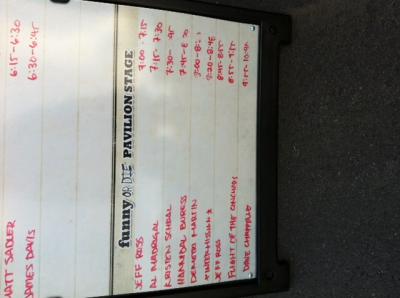 MATT SADLER 6:15-6:30
JAMES DAVIS 6:30-6:45
funny OR DIE PAVILION STAGE
JEFF ROSS 7:00-7:15
AL MADRIGAL 7:15-7:30
KRISTEN SCHAAL 7:30-
HANNIBAL BURESS 7:45-
DEMETRI MARTIN 8:00-
8:20-8:45
JEFF ROSS 8:45-8:55
FLIGHT OF THE CONCHORDS 8:55-9:55
DAVE CHAPPELLE